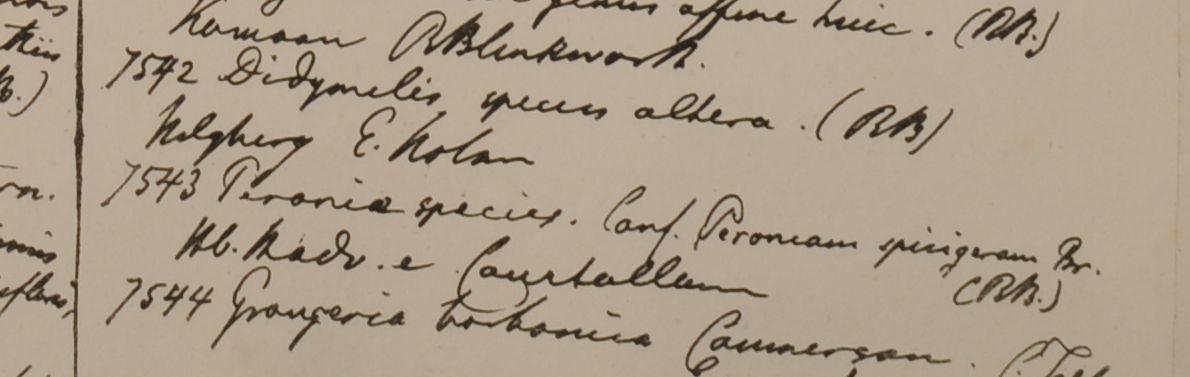 genus affine huic. (RB.)
Kumaon RBlinkworth.
7542 Didymelis, species altera. (RB)
Nilghery E. Nolan
7543 Peronia species. Conf. Peroniam spirigeram Br.
(RB.)
Hb. Madr. e Courtallum
7544 Grangeria borbonica Commerson.